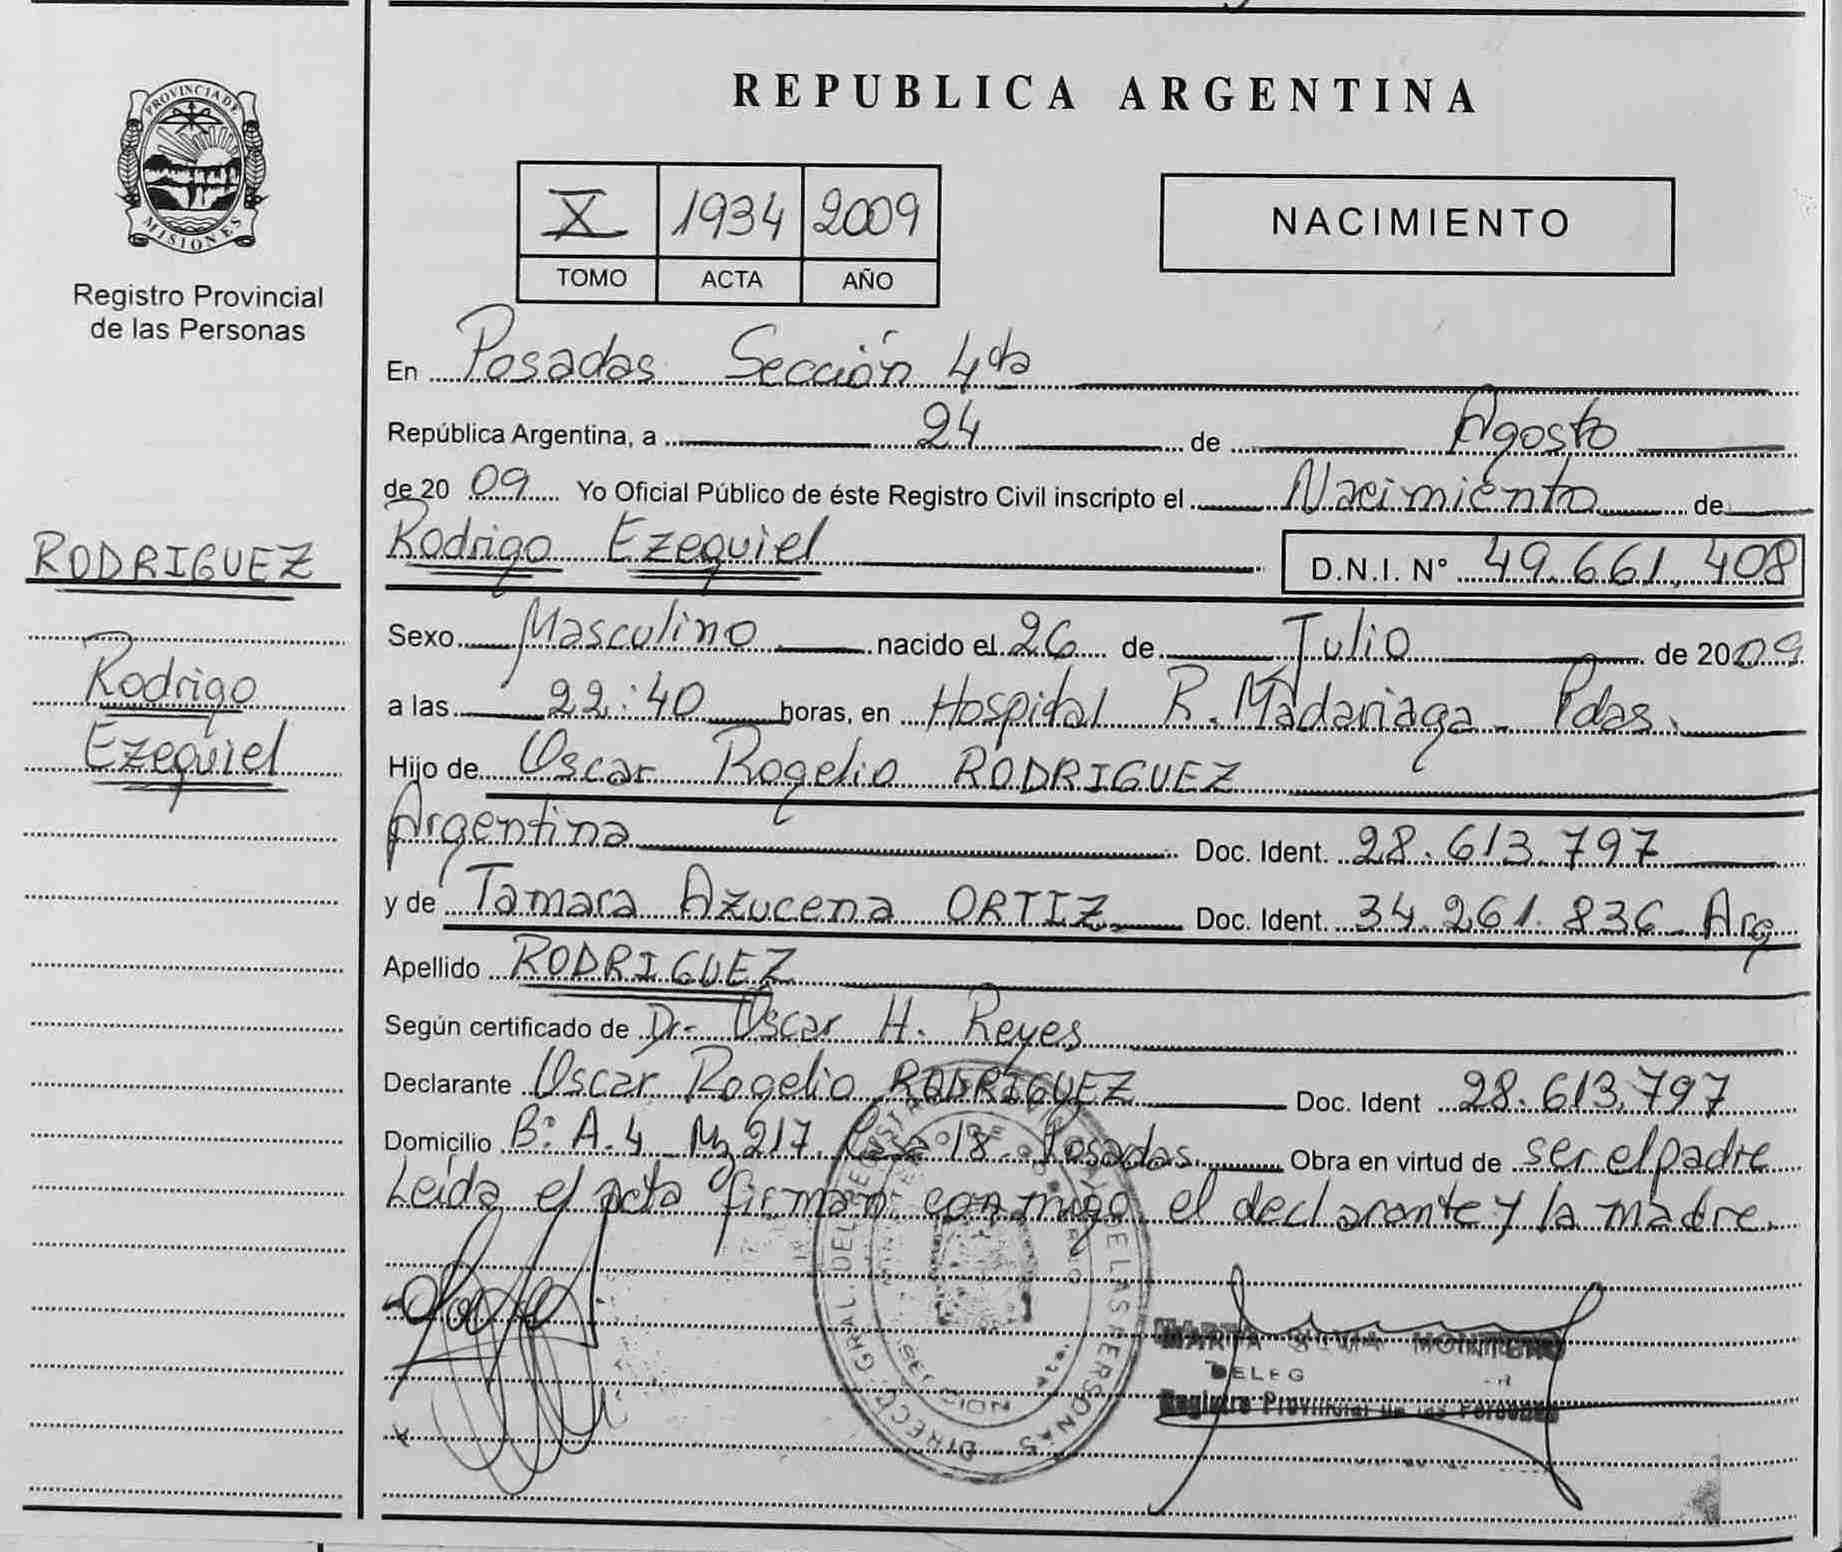 PROVINCIA DE
MISIONES
Registro Provincial
de las Personas
RODRIGUEZ
Rodrigo
Ezequiel
REPUBLICA ARGENTINA
X 1934 2009
TOMO ACTA AÑO
NACIMIENTO
En Posadas Sección 4da
República Argentina, a 24 de Agosto
de 20 09 Yo Oficial Público de éste Registro Civil inscripto el Nacimiento de
Rodrigo Ezequiel D.N.I. N° 49.661.408
Sexo Masculino nacido el 26 de Julio de 2009
a las 22:40 horas, en Hospital R. Madariaga - Pdas.
Hijo de Oscar Rogelio RODRIGUEZ
Argentina Doc. Ident. 28.613.797
y de Tamara Azucena ORTIZ Doc. Ident. 34.261.836 Arg
Apellido RODRIGUEZ
Según certificado de Dr. Oscar H. Reyes
Declarante Oscar Rogelio RODRIGUEZ Doc. Ident 28.613.797
Domicilio B: A.4 Mz 217. Casa 18 - Posadas Obra en virtud de ser el padre
Leída el acta firman conmigo el declarante y la madre.
DIRECC. GRAL. DEL REGISTRO DE LAS PERSONAS
MARTA SILVIA MONTERO
DELEG
Registro Provincial de las Personas